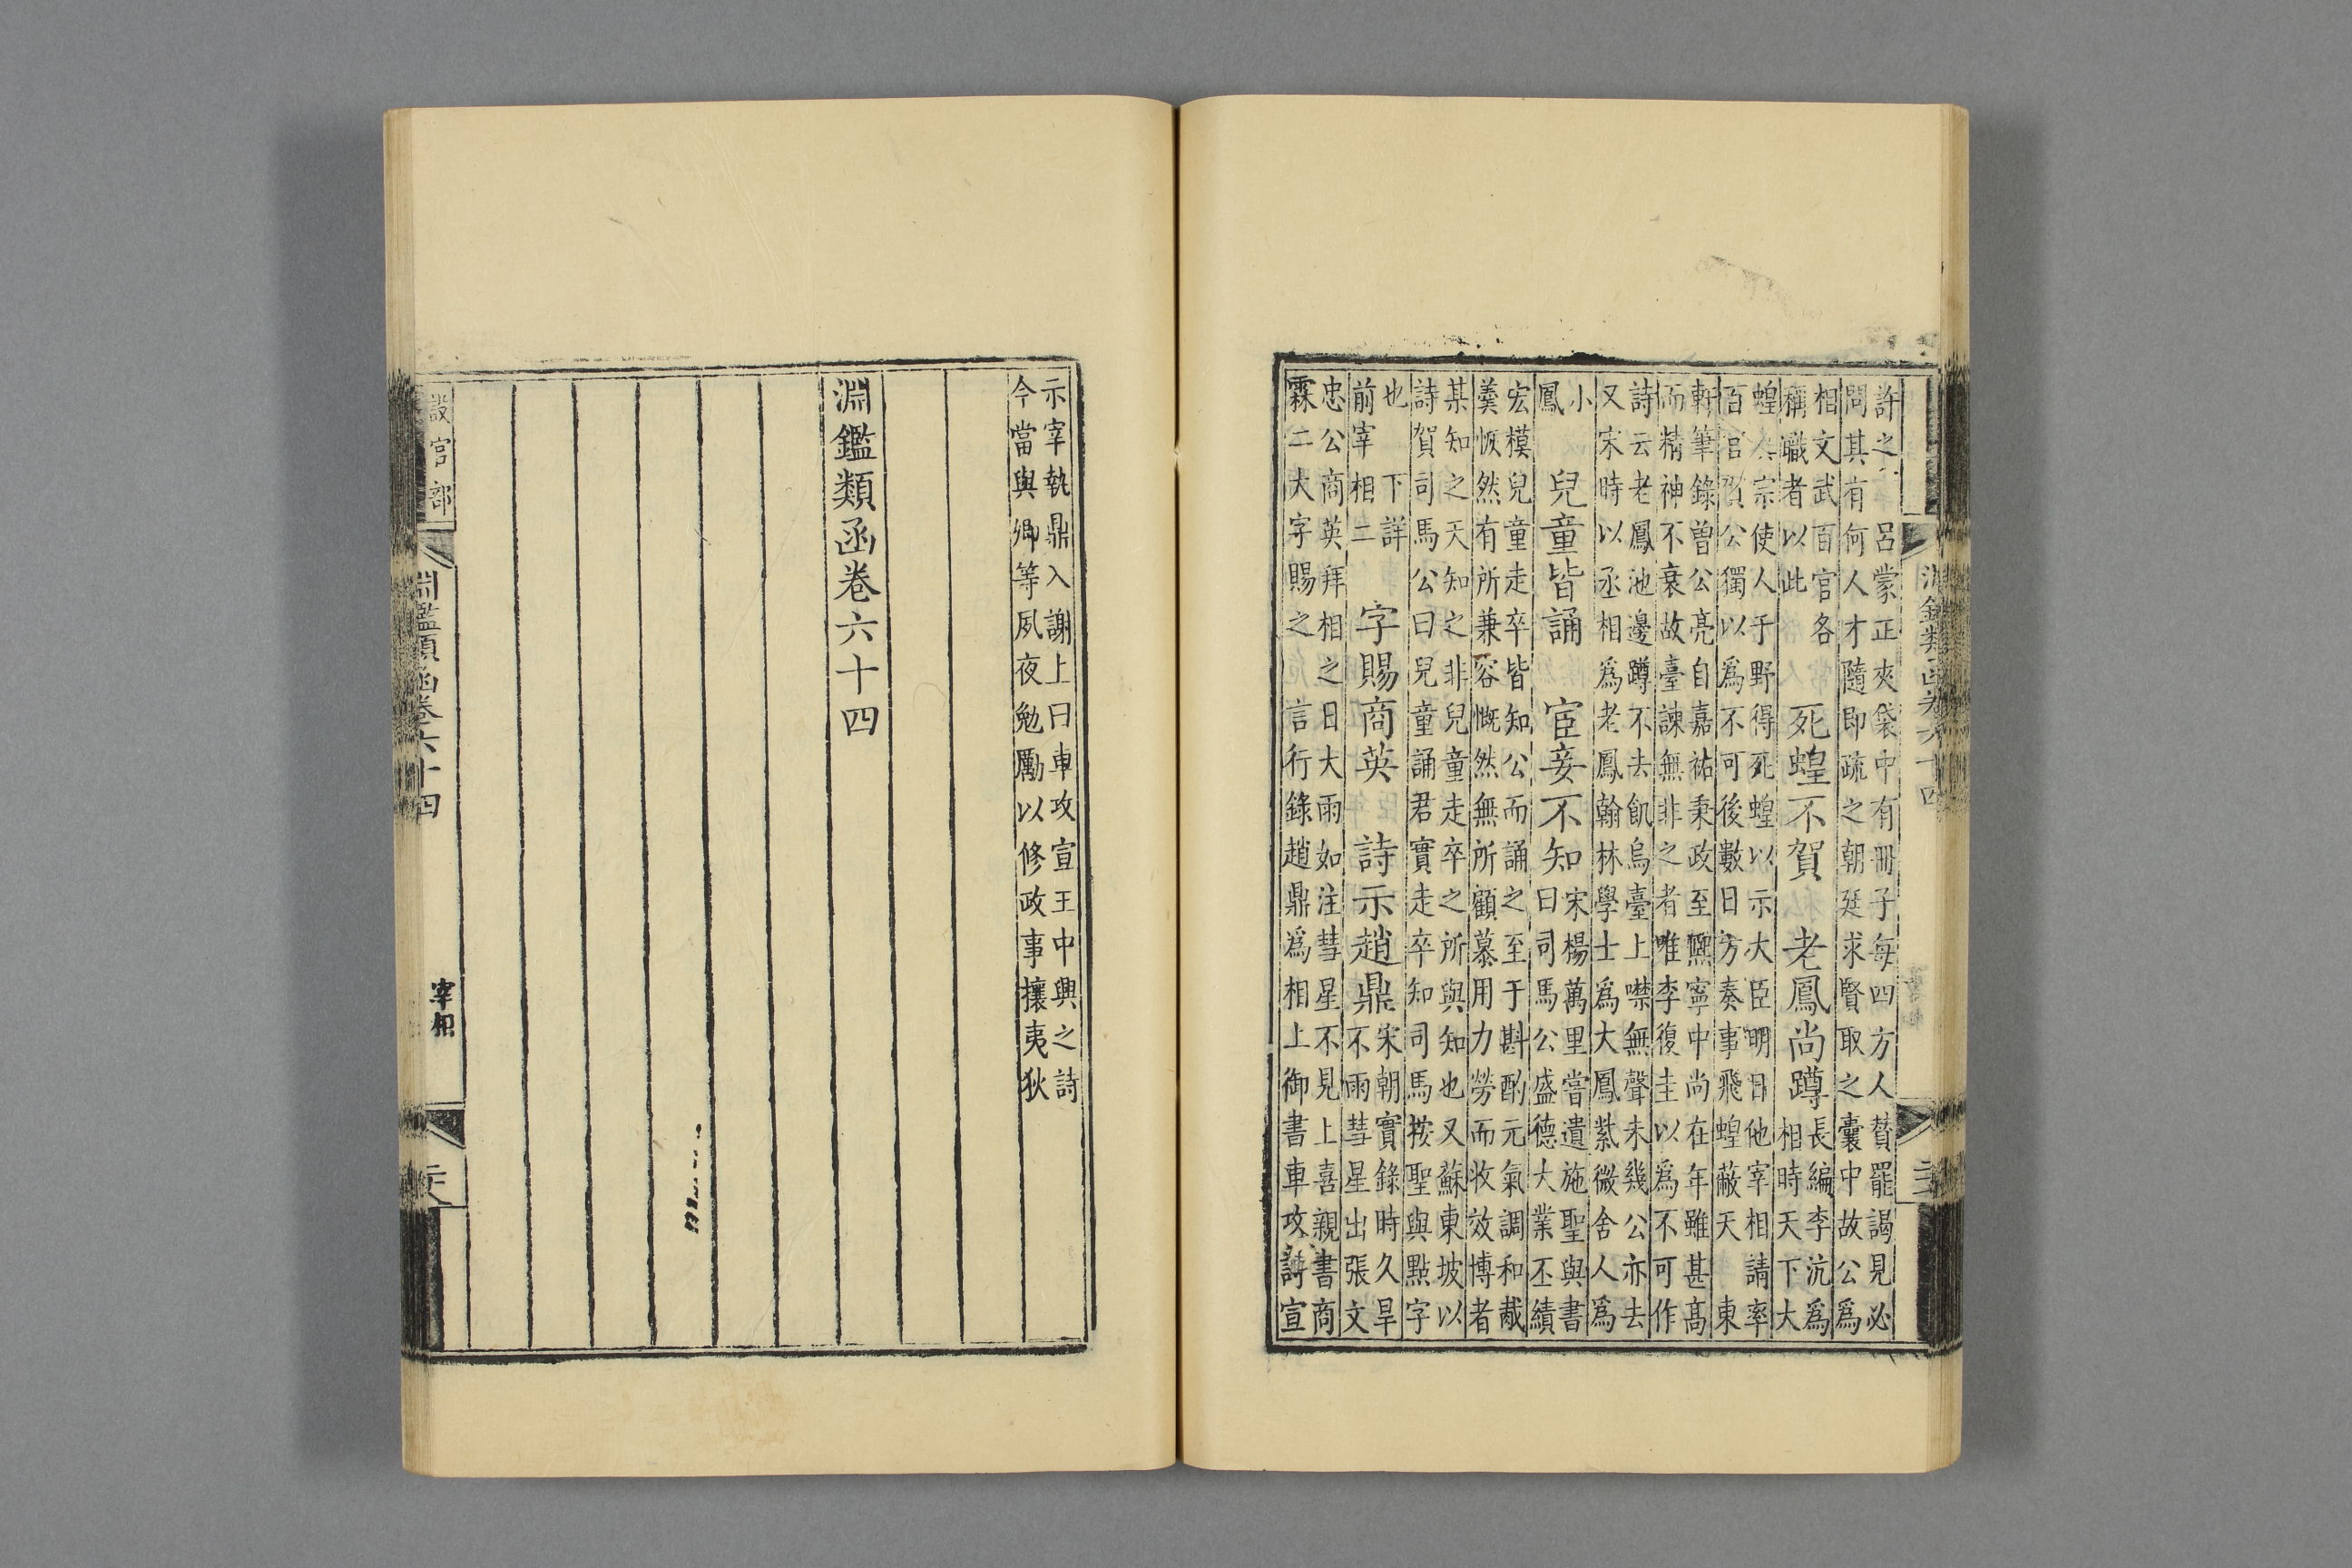 淵鑑類函卷六十四
許之 呂蒙正夾袋中有冊子每四方人贊罷謁見必
問其有何人才隨即疏之朝廷求賢取之囊中故公為
相文武百官各
稱職者以此
死蝗不賀 老鳳尚蹲
長編李沆為
相時天下大
蝗 宗使人于野得死蝗以示大臣明日他宰相請率
百官賀公獨以為不可後數日方奏事飛蝗蔽天 東
軒筆錄曾公亮自嘉祐秉政至熈寧中尚在年雖甚髙
而精神不衰故臺諫無非之者唯李復圭以為不可作
詩云老鳳池邊蹲不去飢烏臺上噤無聲未幾公亦去
又宋時以丞相為老鳳翰林學士為大鳳紫微舍人為
小
鳳
兒童皆誦 宦妾不知
宋楊萬里當遺施聖與書
曰司馬公盛德大業丕績
宏模兒童走卒皆知公而誦之至于斟酌元氣調和胾
羹恢然有所兼容慨然無所顧慕用力勞而收效博者
某知之天知之非兒童走卒之所與知也又蘇東坡以
詩賀司馬公曰兒童誦君實走卒知司馬按聖與點字
也 下詳
前宰相二
字賜商英 詩示趙鼎
宋朝實錄時久旱
不雨彗星出張文
忠公商英拜相之日大雨如注彗星不見上喜親書商
霖二大字賜之 言行錄趙鼎為相上御書車攻詩宣
示宰執鼎入謝上曰車攻宣王中興之詩
今當與卿等夙夜勉勵以修政事攘夷狄
淵鑑類函卷六十四
設官部
淵鑑類函卷六十四
宰相